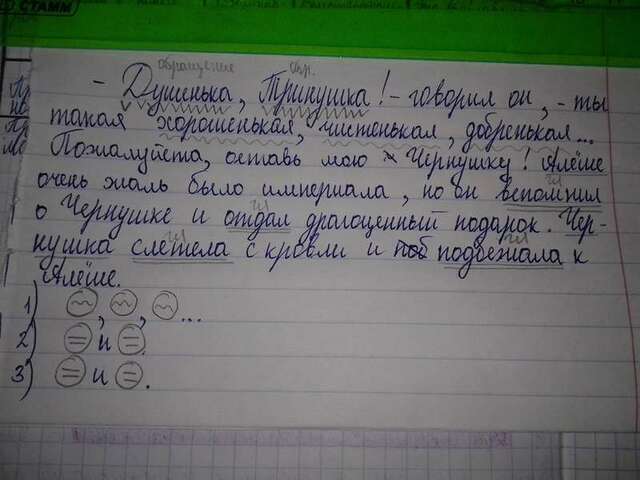 СТАММ
обращение обр.
- Душенька, Тринушка! - говорил он, - ты
такая хорошенькая, чистенькая, добренькая...
Пожалуйста, оставь мою Чернушку! Алёше
очень жаль было империала, но он вспомнил
о Чернушке и отдал драгоценный подарок. Чер-
нушка слетела с кровли и подбежала к
Алёше.
1) , , ...
2) и .
3) и .